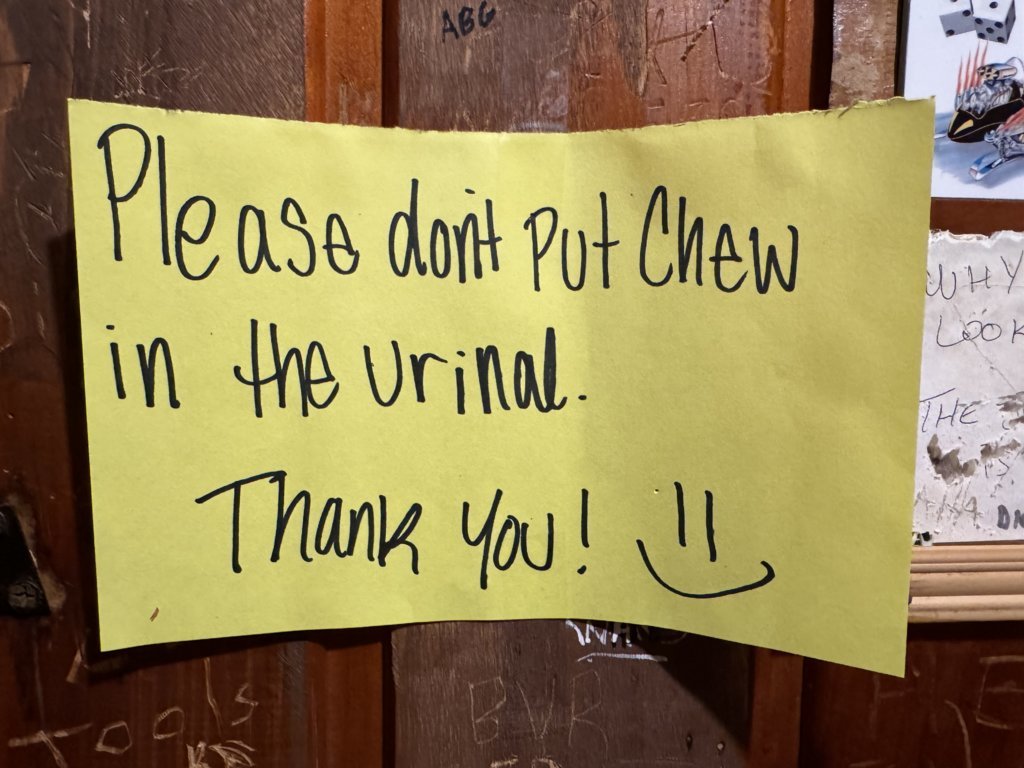 ABG
Please don't put Chew
in the urinal.
Thank you!
WHY
LOOK
THE
TOOLS
BVR